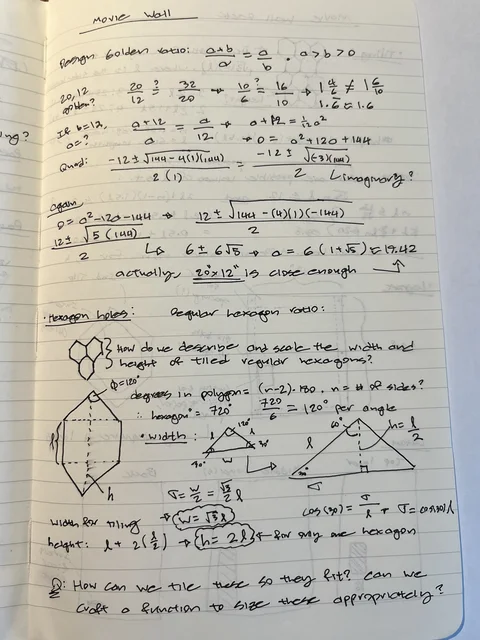 Movie Wall
Design Golden ratio: (a+b)/a = a/b . a > b > 0
20,12 option? 20/12 ?= 32/20 → 10/6 ?= 16/10 → 1 4/6 ≠ 1 6/10
1.6 ≈ 1.6
ing?
If b=12, a=? (a+12)/a = a/12 → a+12 = 1/12 a²
→ 0 = a²+12a+144
Quad: (-12 ± √(144-4(1)(144)))/2(1) = (-12 ± √((-3)(144)))/2
↳ imaginary?
again
0 = a²-12a-144 → (12 ± √(144-(4)(1)(-144)))/2
(12 ± √(5(144)))/2 ↳ 6 ± 6√5 → a = 6(1+√5) ≈ 19.42
actually, 20"x12" is close enough
· Hexagon holes: Regular hexagon ratio:
How do we describe and scale the width and
height of tiled regular hexagons?
ϕ=120°
degrees in polygon = (n-2)·180, n = # of sides?
∴ hexagon° = 720° 720/6 = 120° per angle
· width:
l 120° l 30° 30° w
60° l h = l/2 30° σ
l
h
σ = w/2 = √3/2 l
cos(30) = σ/l → σ = cos(30) l
width for tiling → w = √3 l
height: l + 2(l/2) → h = 2l ← for only one hexagon
Q: How can we tile these so they fit? can we
craft a function to size these appropriately?